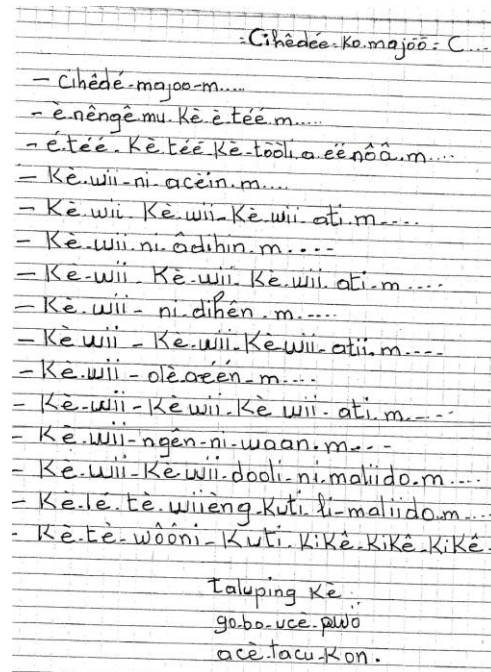 :Cihêdée.Ko.majöö: C....
- cihêdé-majoo-m.....
- è.nêngê.mu.Kè.è.téé.m.....
- é.téé.Kè.téé Kè-tòòli.a.eënôâ.m....
- Kè.wii-ni-acëin.m....
- Kè.wii. Kè.wii-Kè.wii.ati.m-....
- Kè.wii.ni.âdihin.m....
- Kè-wii. Kè.wii. Kè.wii.ati.m....
- Kè.wii- ni.dihên.m.....
- Kè wii - Kè.wii.Kè wii-atii.m....
- Kè.wii-olè.o m....
- Kè-wii-Kè wii-Kè wii-ati.m.....
- Kè.wii-ngên-ni-waan.m....
- Kè.wii-Kè wii.dooli-ni.maliido.m....
- Kè.lé.tè.wiièng.Kuti.li-maliido.m....
- Kè.tè-wôôni-Kuti.KiKê.KiKê.KiKê.
taluping Kè
go.bo-ucè.pwö
acè.tacu.Kon.